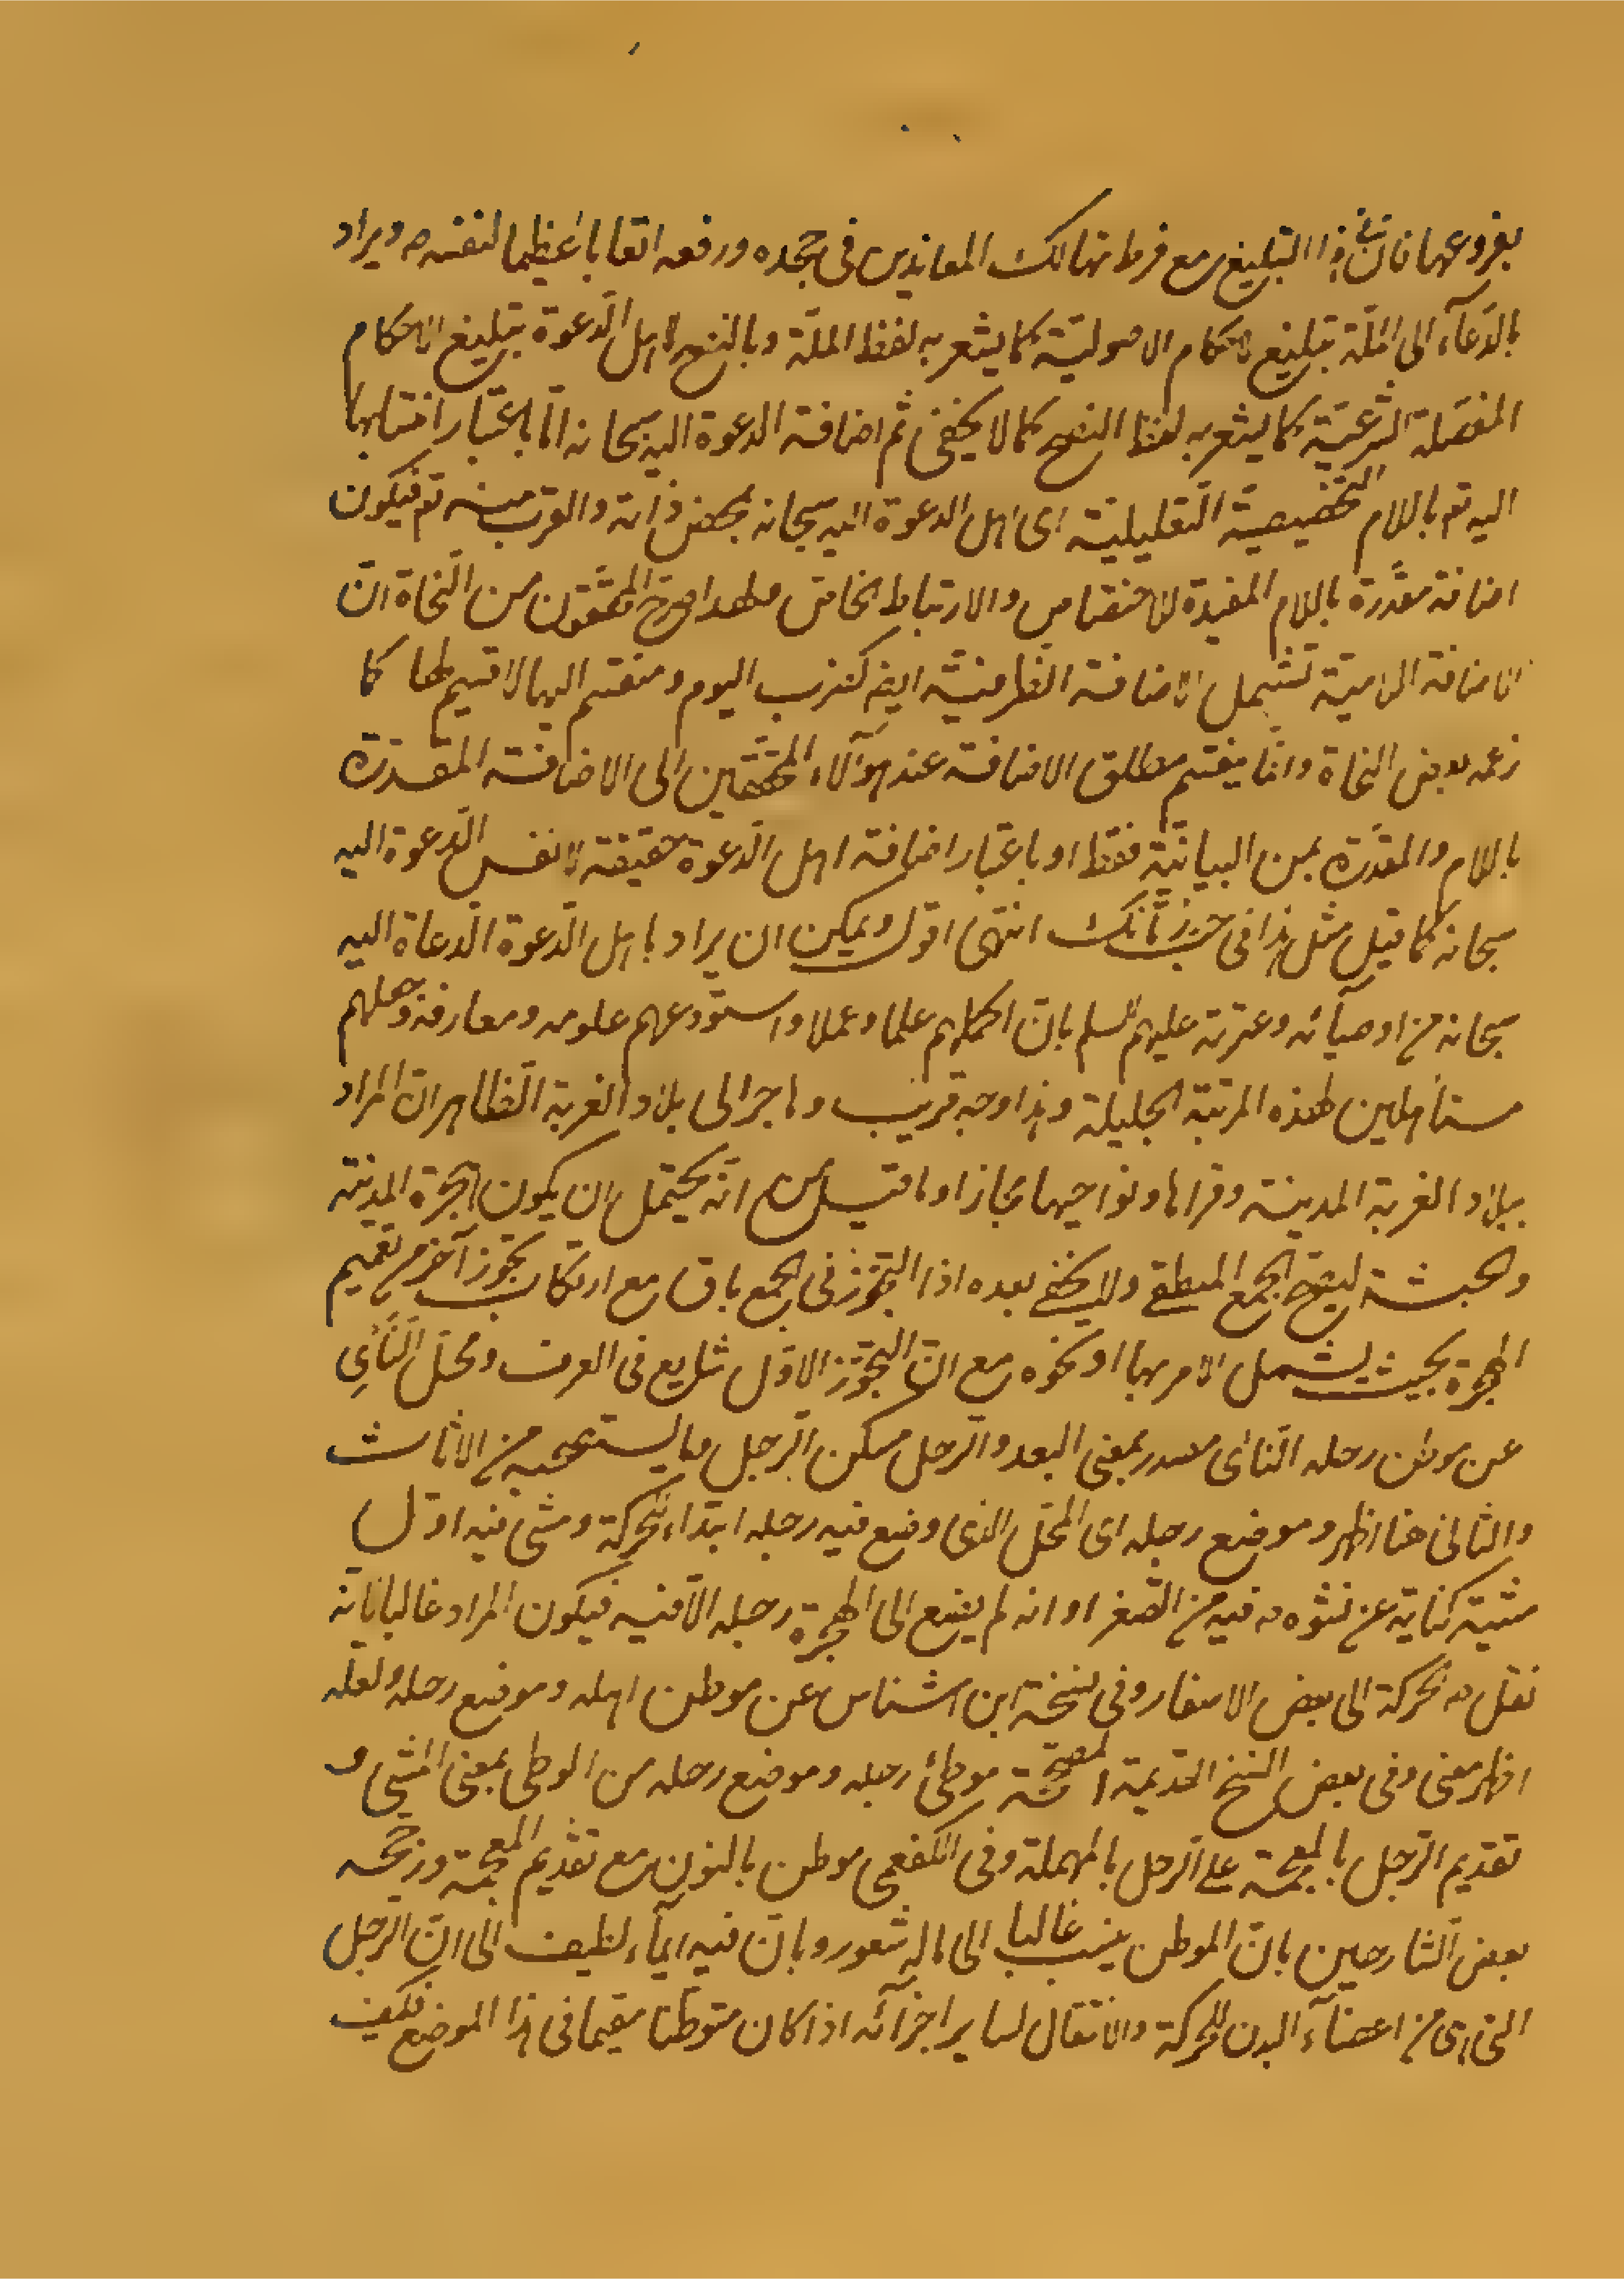 بفروعها فان في هذا التبليغ مع فرط تهالك المعاندين في جحده ورفعه اتعابا عظيما لنفسه ص ويراد
بالدعآء الى الملّة تبليغ الاحكام الاصوليّة كما يشعر به لفظ الملّة وبالنصح لاهل الدّعوة تبليغ الاحكام
المفصّلة الشرعيّة كما يشعر به لفظ النصح كما لا يخفى ثم اضافة الدعوة اليه سبحانه امّا باعتبار انتسابها
اليه تع باللام التخصيصيّة التّعليليّة اى اهل الدعوة اليه سبحانه بمحض ذاته والقرب منه تع فيكون
اضافة مقدّرة باللام المفيدة للاختصاص والارتباط الخاص ولهذا صرّح المحقّقون من النّحاة انّ
الاضافة اللاميّة تشمل الاضافة الظرفيّة ايض كضرب اليوم ومنقسم اليها لا قسيم لها كما
زعمه بعض النحاة وانّما ينقسم مطلق الاضافة عند هؤلآء المحقّقين الى الاضافة المقدّرة
باللام والمقدّرة بمن البيانيّة فقط او باعتبار اضافة اهل الدّعوة حقيقة لا نفس الدّعوة اليه
سبحانه كما قيل مثل هذا في حبّ رمّانك انتهى اقول ويمكن ان يراد باهل الدّعوة الدّعاة اليه
سبحانه من اوصيآئه وعترته عليهم السلم بان اكملهم علما وعملا واستودعهم علومه ومعارفه وجعلهم
مستأهلين لهذه المرتبة الجليلة وهذا وجه قريب وهاجر الى بلاد الغربة الظّاهر ان المراد
ببلاد الغربة المدينة وقراها ونواحيها مجازا وما قيل من انّه يحتمل ان يكون هجرة المدينة
والحبشة ليصحّ الجمع المنطقي ولا يخفى بعده اذا التجوّز في الجمع باق مع ارتكاب تجوّز آخر من تعميم
الهجرة بحيث يشمل الامر بها او نحوه مع انّ التجوّز الاوّل شايع في العرف ومحلّ النّأي
عن موطن رحله النّأي مصدر بمعنى البعد والرّحل مسكن الرّجل وما يستصحبه من الاثاث
والثاني هنا اظهر وموضع رجله اى المحلّ الذي وضع فيه رجله ابتداء للحركة ومشى فيه اوّل
مشية كناية عن نشوه ص فيه من الصّغر او انه لم يضع الى الهجرة رجله الّا فيه فيكون المراد غالبا لانّه
نقل ص حركة الى بعض الاسفار وفي نسخة ابن اشناس عن موطن اهله وموضع رحله ولعلّه
اظهر معنى وفي بعض النسخ القديمة المصحّحة موطئ رجله وموضع رحله من الوطى بمعنى المشي و
تقديم الرّجل بالمعجمة على الرّحل بالمهملة وفي الكفعمي موطن بالنون مع تقديم المعجمة ورجّحه
بعض الشّارحين بانّ الموطن ينسب غالبا الى ماله شعور وبانّ فيه ايمآء لطيف الى انّ الرّجل
التي هى من اعضآء البدن للحركة والانتقال لساير اجزآئه اذا كان متوطّنا مقيما في هذا الموضع فكيف